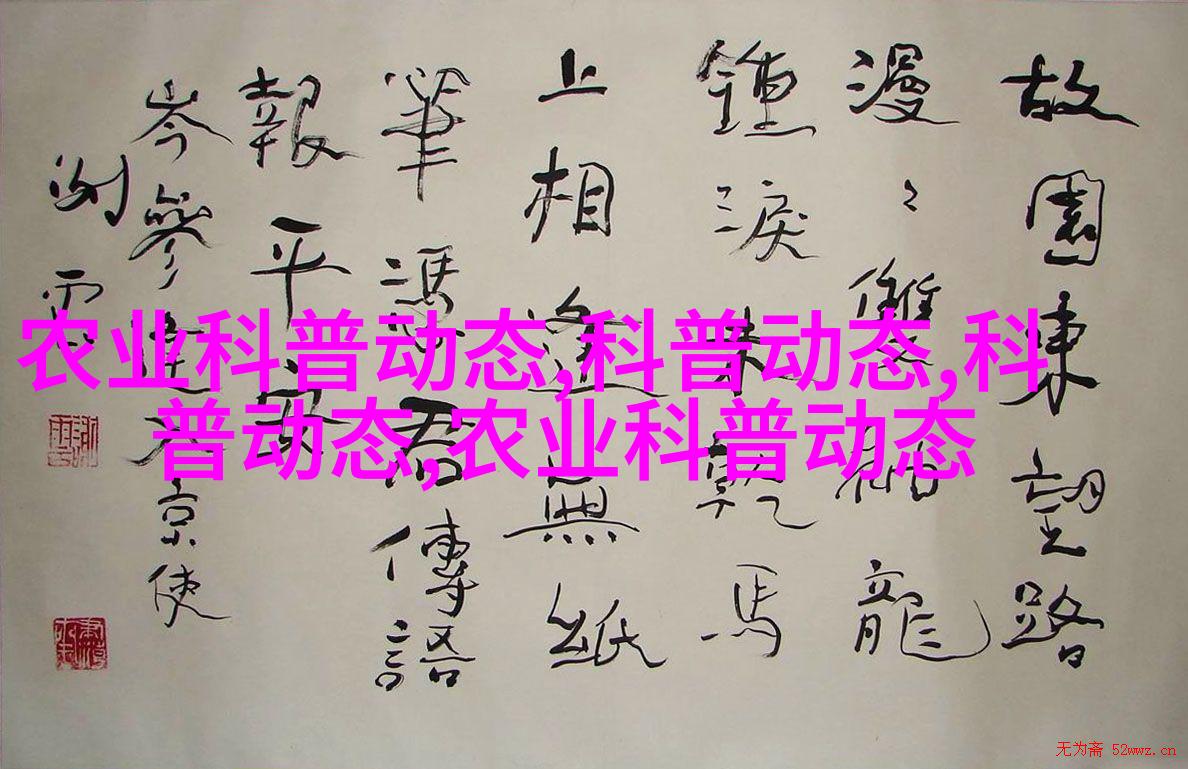 故園東望路
漫々雙袖龍
鍾淚未乾馬
上相逢無紙
筆馮君傳語
報平安
岑參逢入京使
农业科普动态,科普动态,科
普动态,农业科普动态
无为斋 52wwz.cn